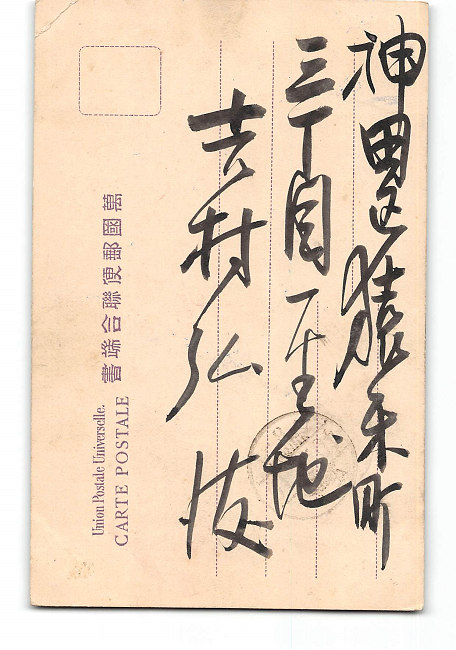 神田区猿楽町
三丁目一番地
吉村弘
萬國郵便聯合端書
Union Postale Universelle.
CARTE POSTALE